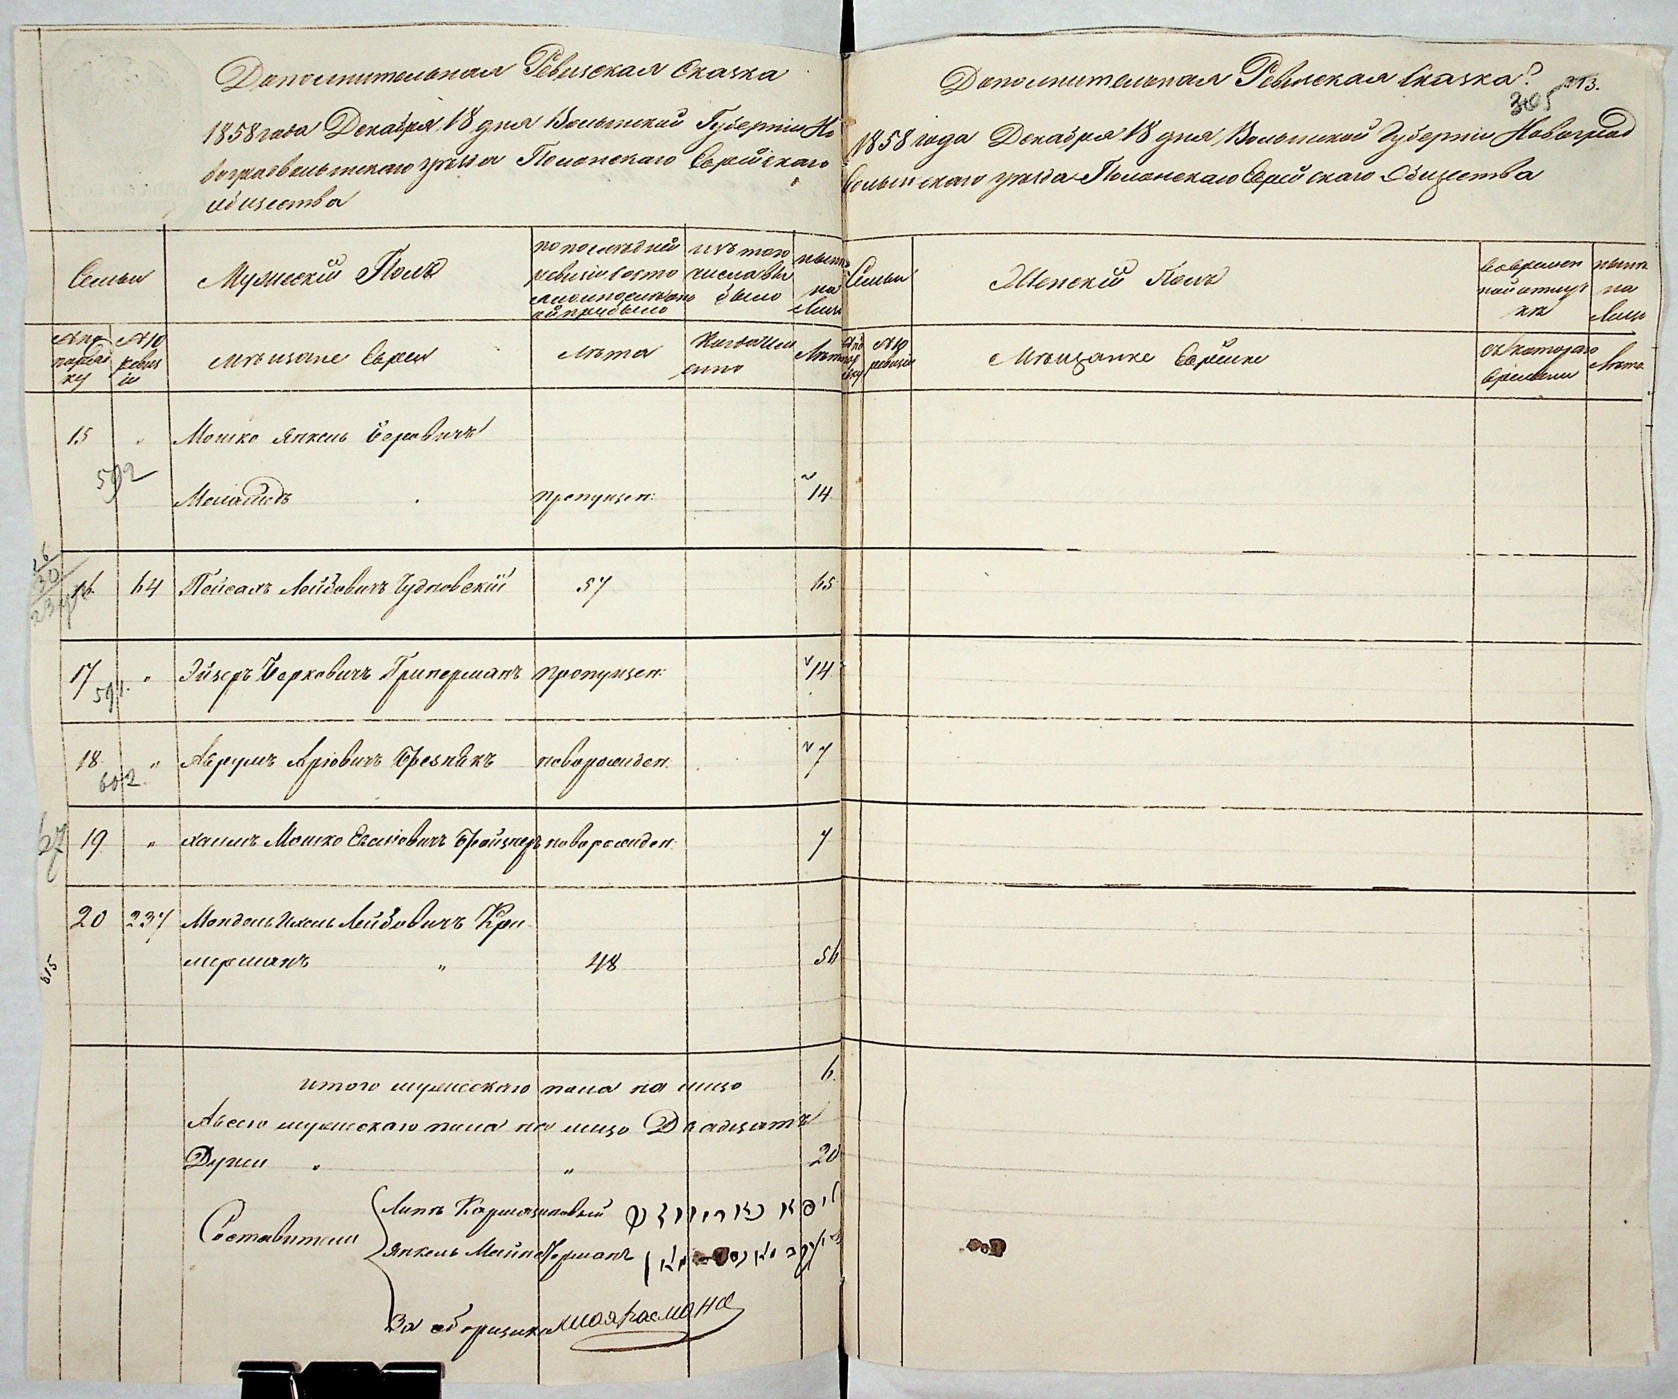 Дополнительная Ревизская Сказка
1858 года Декабря 18 дня Волынской Губернии Но
воградволынскаго уезда Полонскаго Еврейскаго
общества
Семьи
Мужескій Полъ
по последней
ревизіи состо
яло и после
оной прибыло
изъ того
числа вы
было
ныне
на
лицо
№ по
порядку
№ 10
ревиз
іи
Мещане Евреи
Лета
Когда им
енно
Лета
15 " Мошко Янкель Беровичъ
592
Меламедъ пропущен: 14
16 64 Пейсахъ Лейбовичъ Чудновскій 57 65
17 " Эйзеръ Берковичъ Приперманъ пропущен: 14
591.
18 " Аврумъ Аріовичъ Брезникъ новорожден: 7
602.
19 " Хаимъ Мошко Евсіовичъ Бройзнеръ новорожден: 7
20 237 Мендель Ихель Лейбовичъ Кри
мерманъ " 48 56
615
итого мужескаго пола на лицо 6.
А всего мужескаго пола на лицо Двадцать
Души " " 20
Составители
Липа Кармазиновый
Янкель Мейн
За сборщика
Дополнительная Ревизская Сказка
305
313.
1858 года Декабря 18 дня, Волынской Губерніи Новоград
волынскаго уезда Полонскаго Еврейскаго Общества
Семьи
Женскій Полъ
во времен
ной отлуч
ке
ныне
на
лицо
№ 10
ревизіи
Мещанке Еврейке
съ котораго
времени
Лета